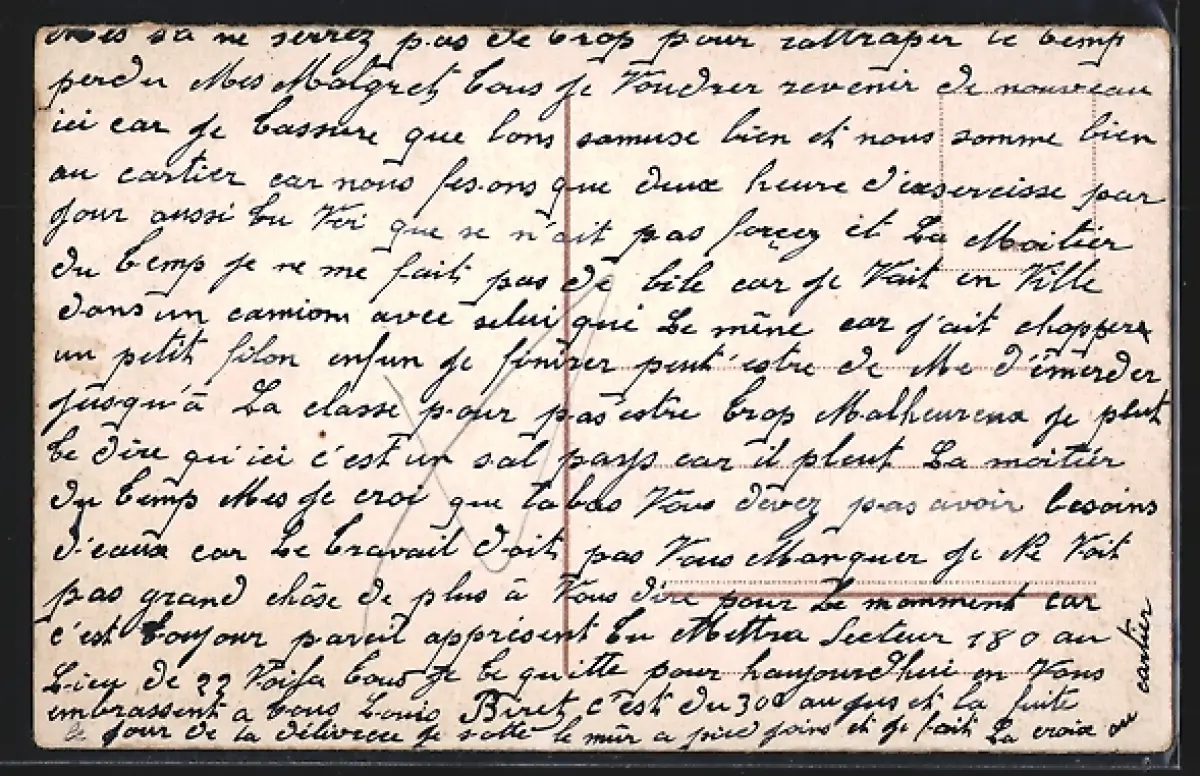 sa ne serrez pas de trop pour rattraper le temp
perdu Mes Malgret tous je Voudrer revenir de nouveau
ici car je tassure que lons samuse bien et nous somme bien
au cartier car nous fesons que deux heure d'exserscisse par
jour aussi tu Voi que se n'ait pas forçez et La Moitier
du temp je ne me fait pas de bile car je Vait en Ville
dans un camiom avec selui qui Le mêne car j'ait chopper
un petit filon enfun je finirer peut'estre de Me d'émerder
jusqu'à La classe pour pas estre trop Malheureux je plut
te dire qu'ici c'est un sal pays car il pleut La moitier
du temp Mes je croi que labas Vous devez pas avoir besoins
d'eaux car Le travail doit pas Vous Manquer je Ne Voit
pas grand chôse de plus à Vous dire pour Le momment car
c'est toujour pareil apprésent tu Mettra Secteur 180 au
Lieu de 22 Voila tous je te quitte pour haujourd'hui en Vous
embrassent a tous Louis Biret c'est du 308 au jus et la fuite
le jour de la délivrence je saute le mûr a pied joins et je fait La croix au
cartier